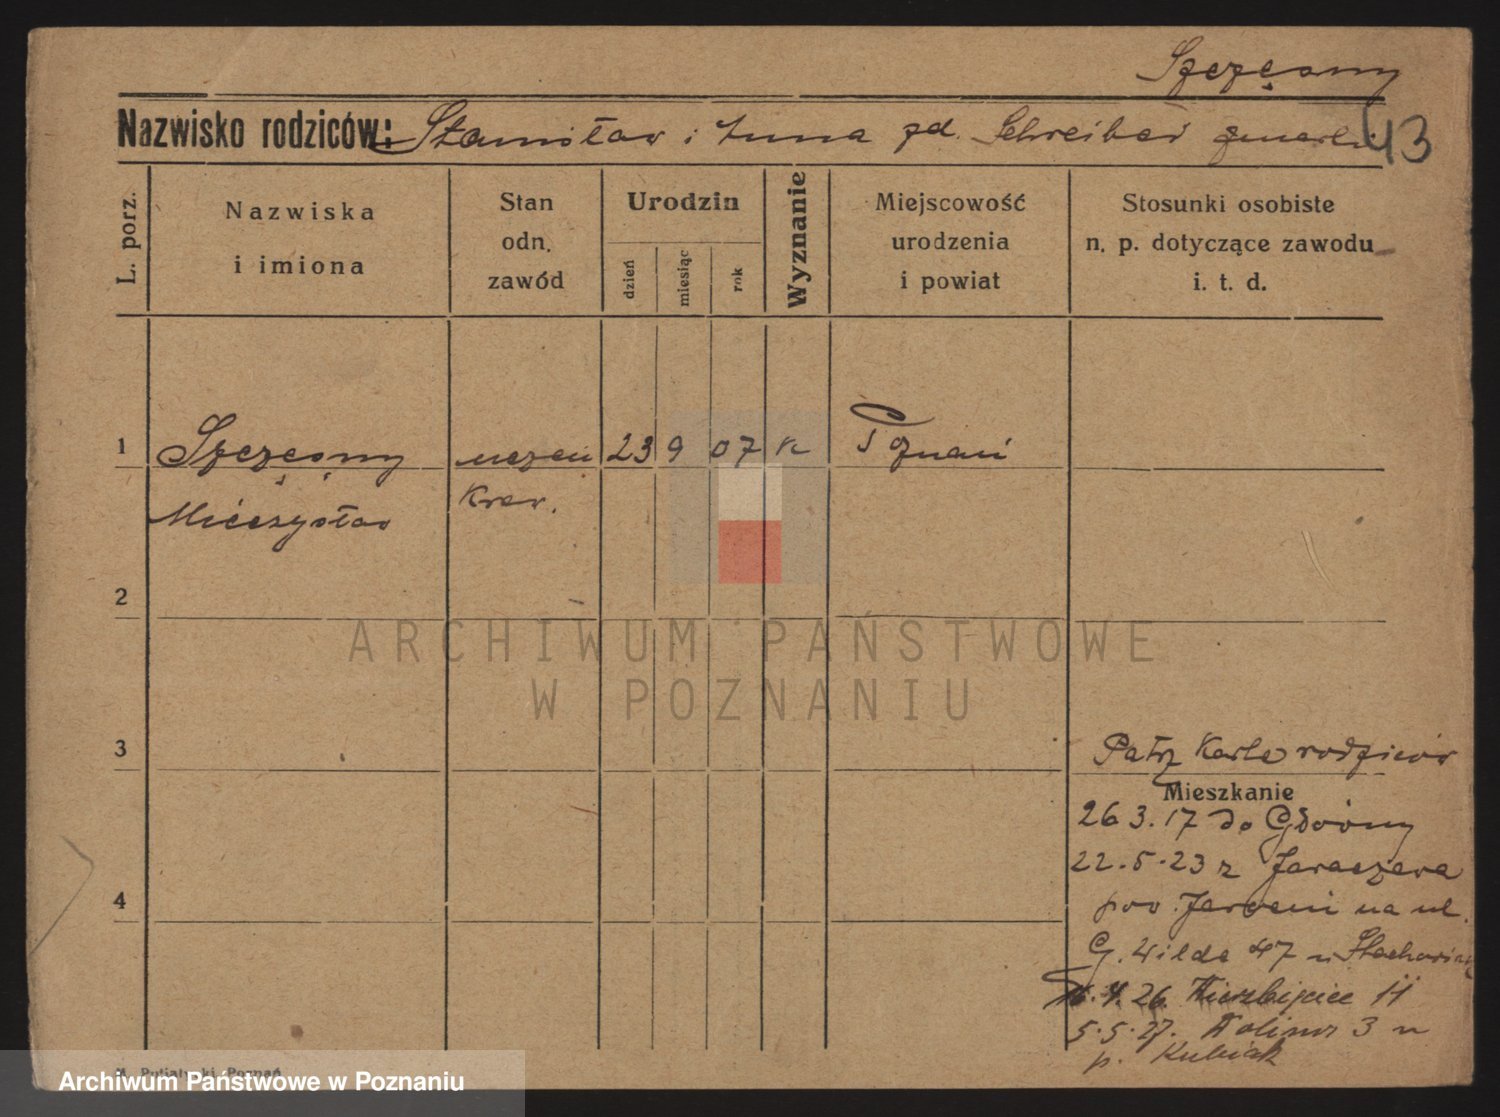 Szczęsny
43
Nazwisko rodziców: Stanisław i Anna zd. Schreiber zmarli
L. porz.
Nazwiska
i imiona
Stan
odn.
zawód
Urodzin
dzień
miesiąc
rok
Wyznanie
Miejscowość
urodzenia
i powiat
Stosunki osobiste
n. p. dotyczące zawodu
i. t. d.
1 Szczęsny uczeń 23 9 07 K Poznań
Mieczysław Kraw.
2
ARCHIWUM PAŃSTWOWE
W POZNANIU
3
Patrz Karta rodziców
Mieszkanie
26 3.17 do Główny
22.5.23 z Jaraczewa
4
pow. Jarocin na ul.
G. Wilda 47 u
4.26
5.5.27. 3 u
p. Kubiak
Poznań
Archiwum Państwowe w Poznaniu